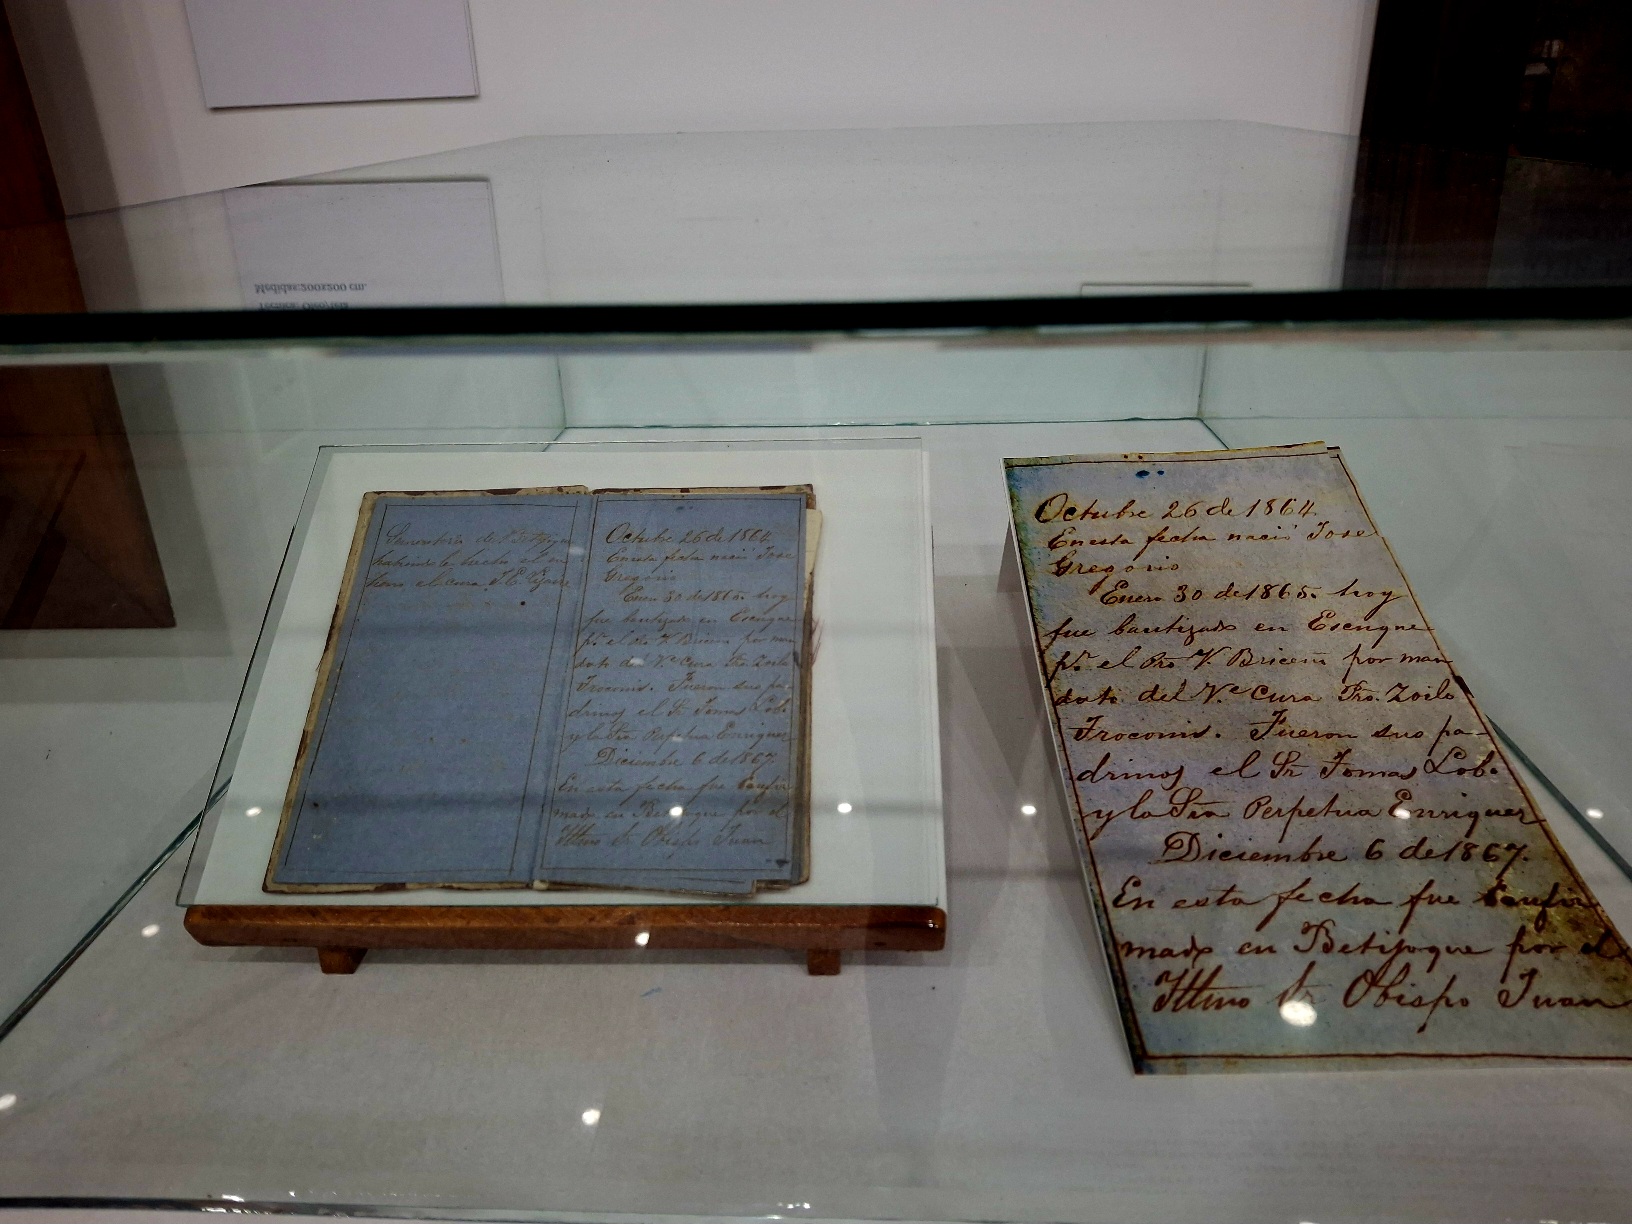 Medidas:200x200 cm.
Técnica: Óleo/tela
Senectoria de Betijoque
habiendo hecho el
el cura J. E.
Octubre 26 de 1864.
En esta fecha nació Jose
Gregorio
Enero 30 de 1865. hoy
fue bautizado en Escuque
pr. el Pro V. Briceñ por man
dato del Ve. Cura Pro. Zoilo
Troconis. Fueron sus pa-
drinos el Sr Tomas Lobo
y la Sra Perpetua Enriquez
Diciembre 6 de 1867.
En esta fecha fue Confir
mado en Betijoque por el
Illmo Sr Obispo Juan
Octubre 26 de 1864.
En esta fecha nació Jose
Gregorio
Enero 30 de 1865. hoy
fue bautizado en Escuque
pr. el Pro V. Briceñ por man
dato del Ve. Cura Pro. Zoilo
Troconis. Fueron sus pa-
drinos el Sr Tomas Lobo
y la Sra Perpetua Enriquez
Diciembre 6 de 1867.
En esta fecha fue Confir
mado en Betijoque por el
Illmo Sr Obispo Juan